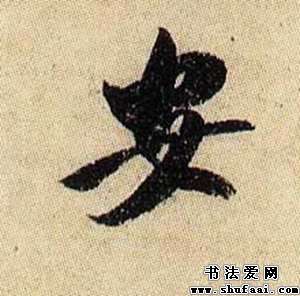 安
书法爱网
www.shufaai.com